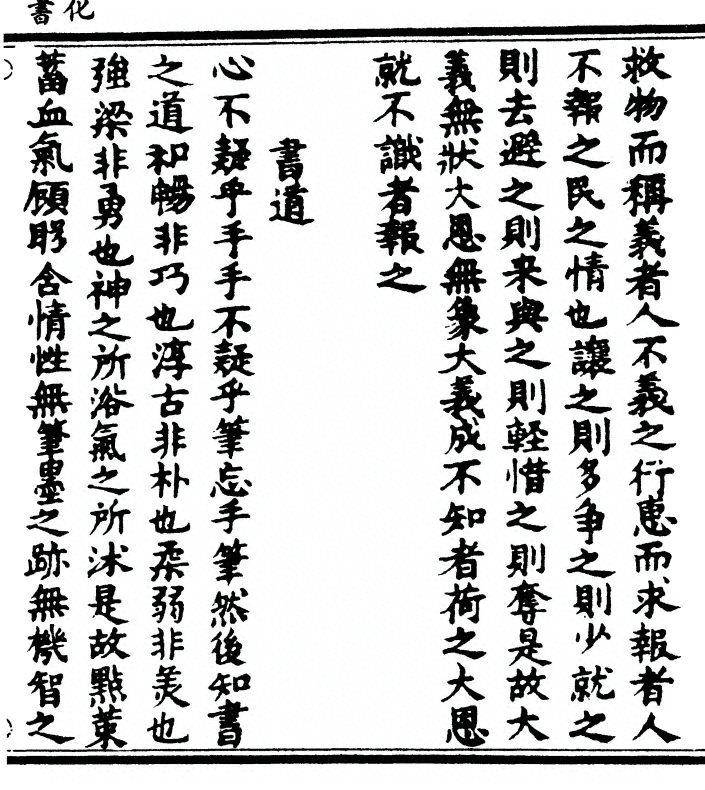 化書
救物而稱義者人不義之行惠而求報者人
不報之民之情也讓之則多争之則少就之
則去避之則来與之則軽惜之則奪是故大
義無狀大恩無象大義成不知者荷之大恩
就不識者報之
書道
心不疑乎手手不疑乎筆忘手筆然後知書
之道和暢非巧也淳古非朴也柔弱非美也
強梁非勇也神之所浴氣之所沐是故點策
蓄血氣顧眄含情性無筆墨之跡無機智之